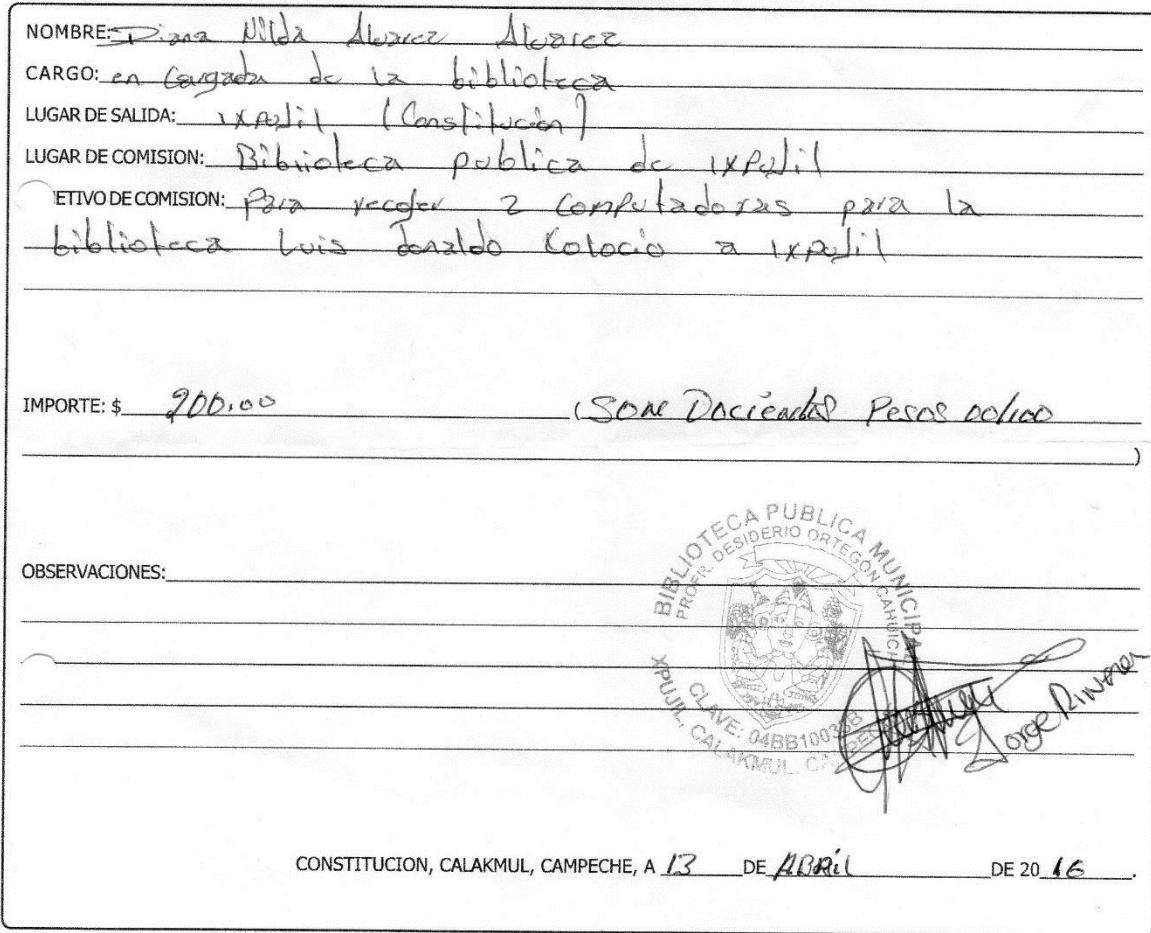 NOMBRE: Diana Nilda Alvarez Alvarez
CARGO: en Cargada de la biblioteca
LUGAR DE SALIDA: IXpujil (Constitución)
LUGAR DE COMISION: Biblioteca publica de IXpujil
ETIVO DE COMISION: Para recoger 2 Computadoras para la
biblioteca Luis donaldo Colocio a IXpujil
IMPORTE: $ 200.00 (SON Docientos Pesos 00/100
)
BIBLIOTECA PUBLICA MUNICIPAL
PROFR. DESIDERIO ORTEGON CAHUICH
OBSERVACIONES:
CLAVE: 04BB10033B
XPUJIL, CALAKMUL, CAMPECHE
Jorge
CONSTITUCION, CALAKMUL, CAMPECHE, A 13 DE ABRil DE 20 16.